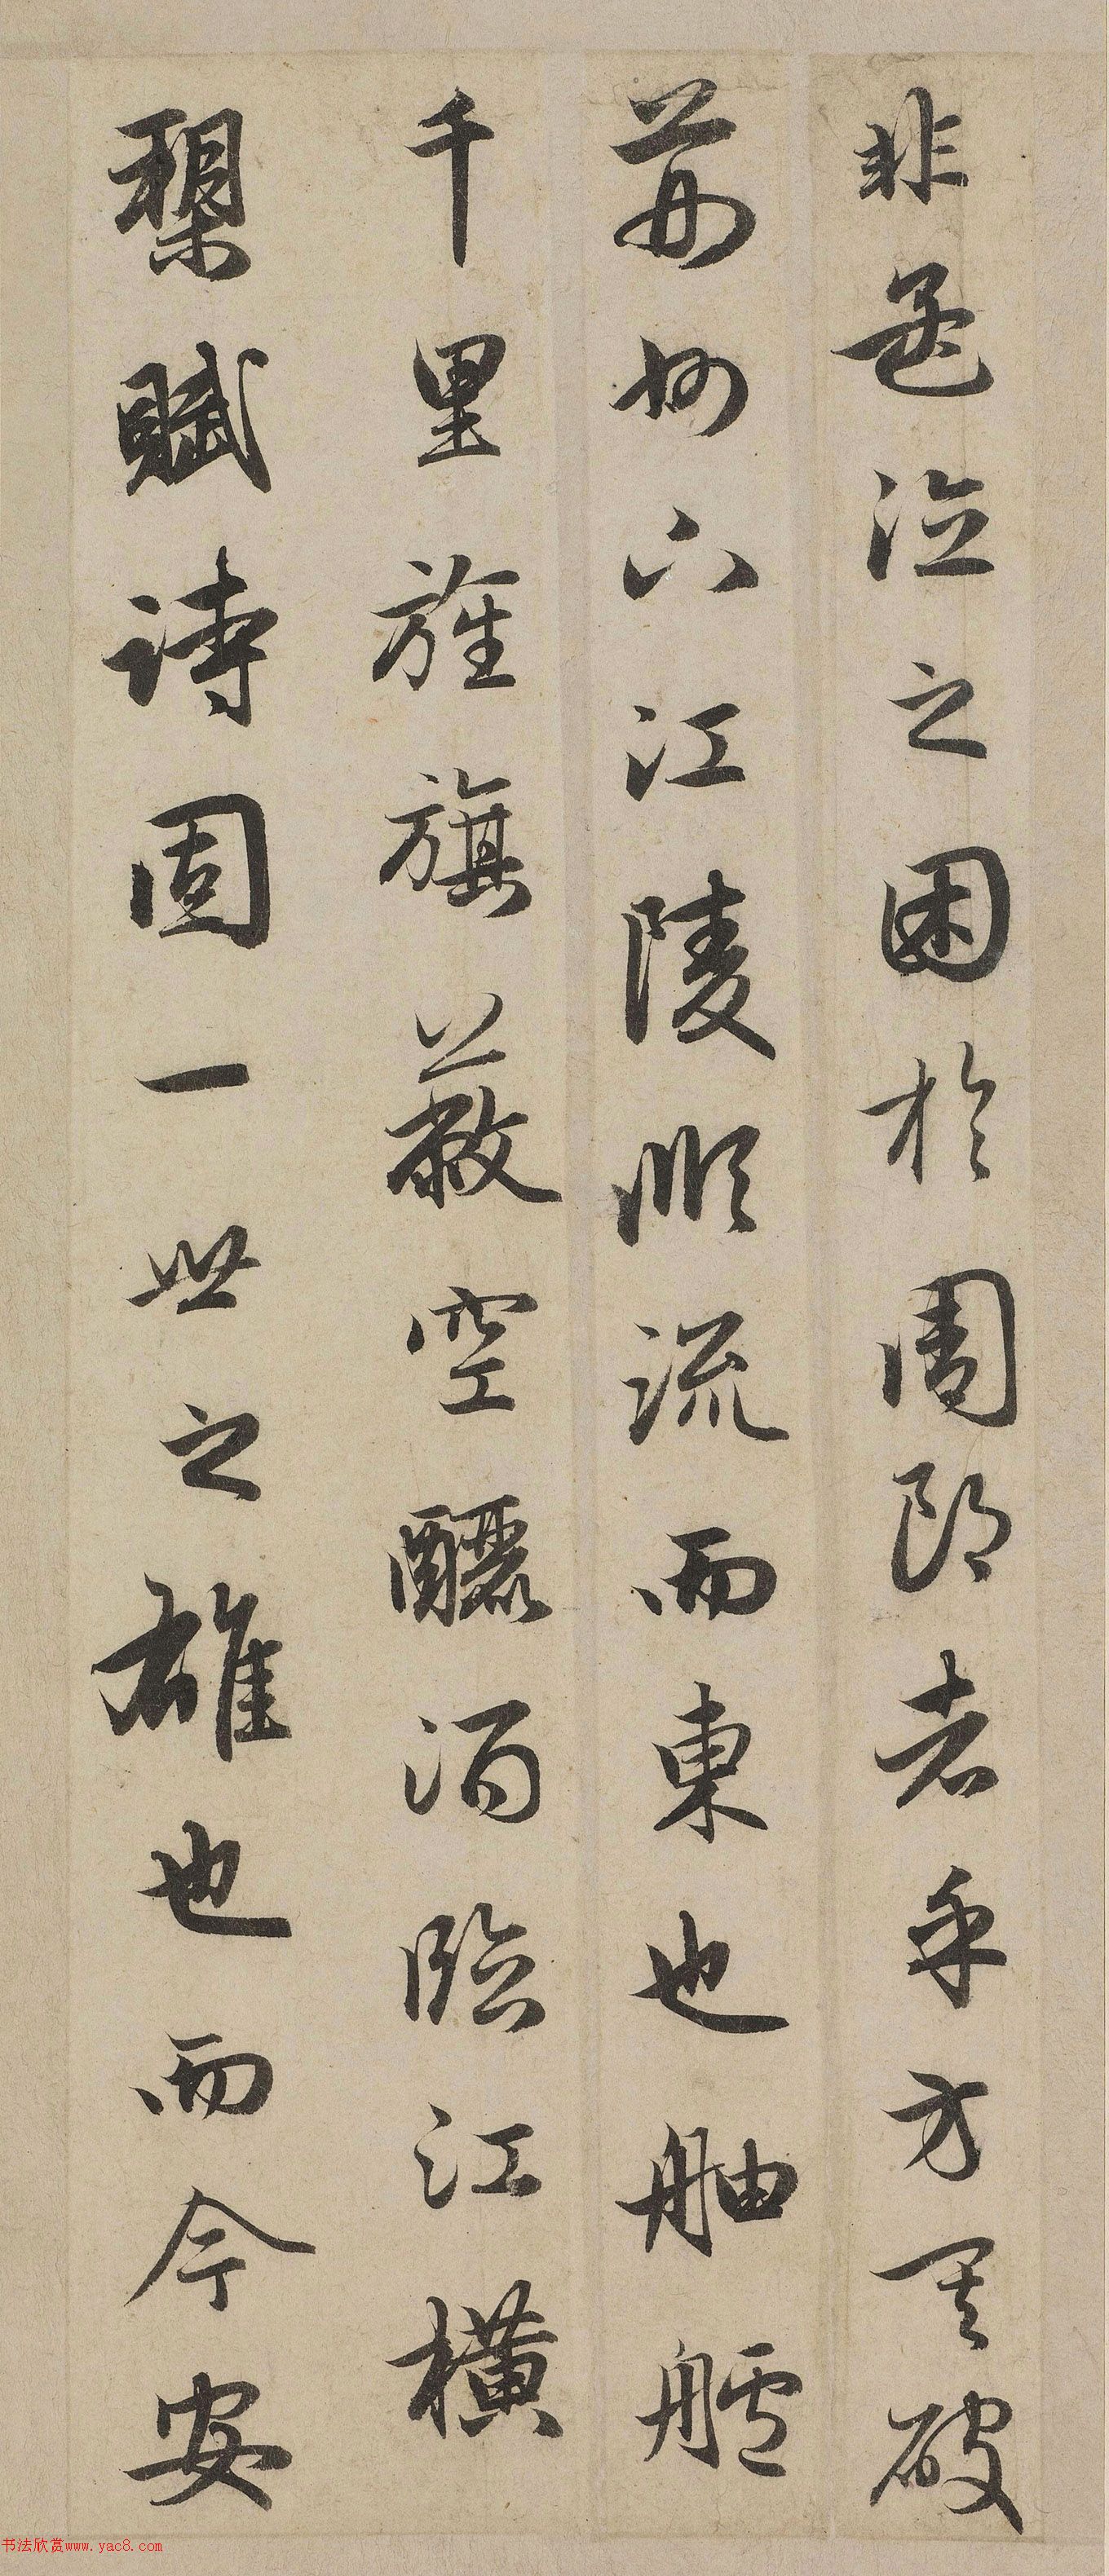 非孟德之困於周郎者乎方其破
荊州下江陵順流而東也舳艫
千里旌旗蔽空釃酒臨江橫
槊賦詩固一世之雄也而今安
书法欣赏www.yac8.com